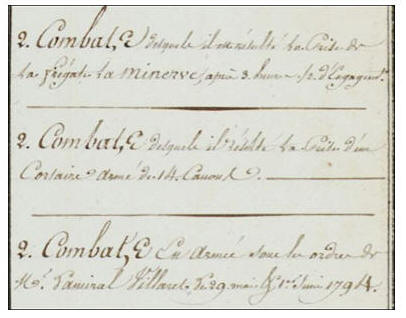 2. Combat, & desquels il est résulté La Prise de
La frégate La Minerve, après 3. heures 1/2 d'Engagemt.
2. Combat, & desquels il résulte La Prise d'un
Corsaire armé de 14. Canons.
2. Combats, & En armée sous les ordres de
Mr. L'amiral Villaret Le 29 mai & 1er. Juin 1794.